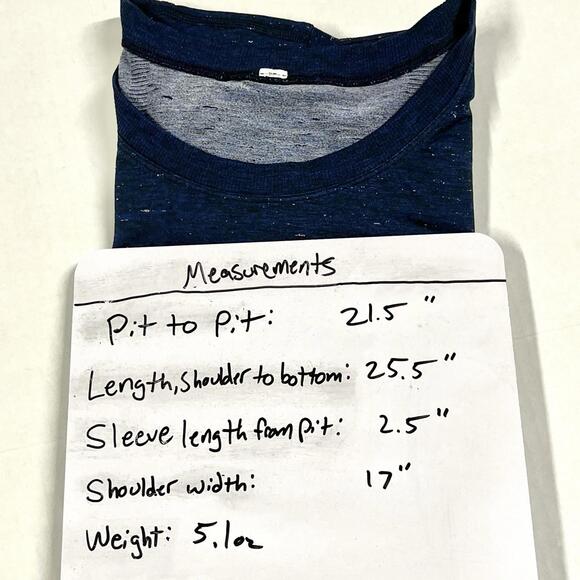 Measurements
Pit to Pit: 21.5"
Length, Shoulder to bottom: 25.5"
Sleeve length from pit: 2.5"
Shoulder width: 17"
Weight: 5.1oz